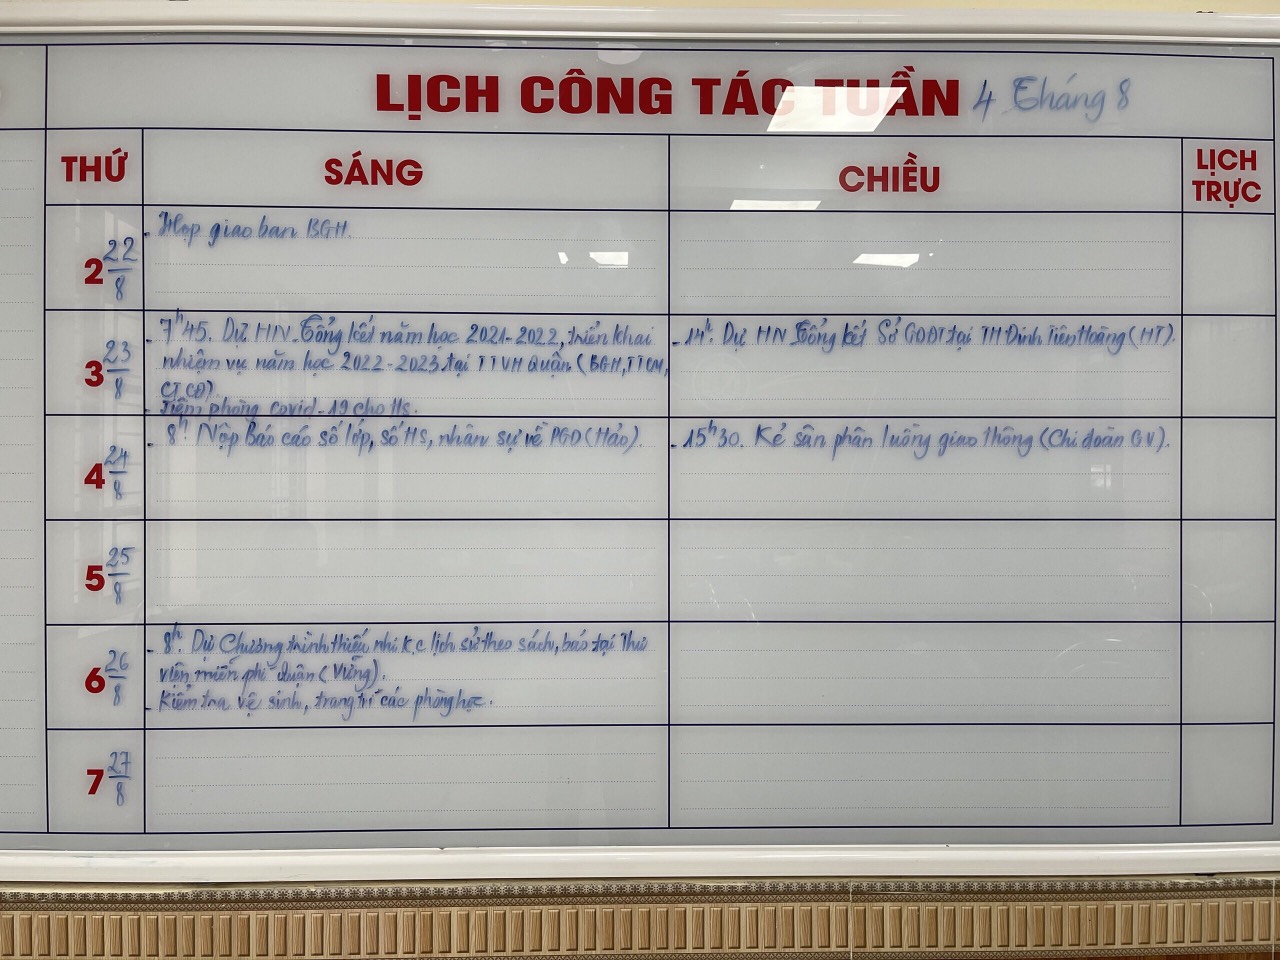 LỊCH CÔNG TÁC TUẦN 4 Tháng 8
THỨ SÁNG CHIỀU LỊCH TRỰC
2 22/8
- Họp giao ban BGH.
3 23/8
- 7h45. Dự HN Tổng kết năm học 2021-2022, triển khai
nhiệm vụ năm học 2022-2023 tại TTVH Quận (BGH, TTCM,
CTCĐ).
- Tiêm phòng covid-19 cho Hs.
- 14h. Dự HN Tổng kết Sở GDĐT tại TH Đinh Tiên Hoàng (HT).
4 24/8
- 8h. Nộp Báo cáo số lớp, số Hs, nhân sự về PGD (Hảo).
- 15h30. Kẻ sân phân luồng giao thông (Chi đoàn GV).
5 25/8
6 26/8
- 8h. Dự Chương trình thiếu nhi k.c lịch sử theo sách, báo tại Thư
viện miễn phí Quận (Vững).
- Kiểm tra vệ sinh, trang trí các phòng học.
7 27/8